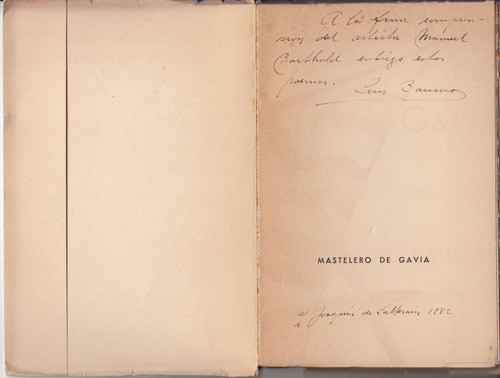 A la fina compren-
sión del artista Manuel
Barthold entrego estos
poemas. Luis
MASTELERO DE GAVIA
Joaquín de 1282